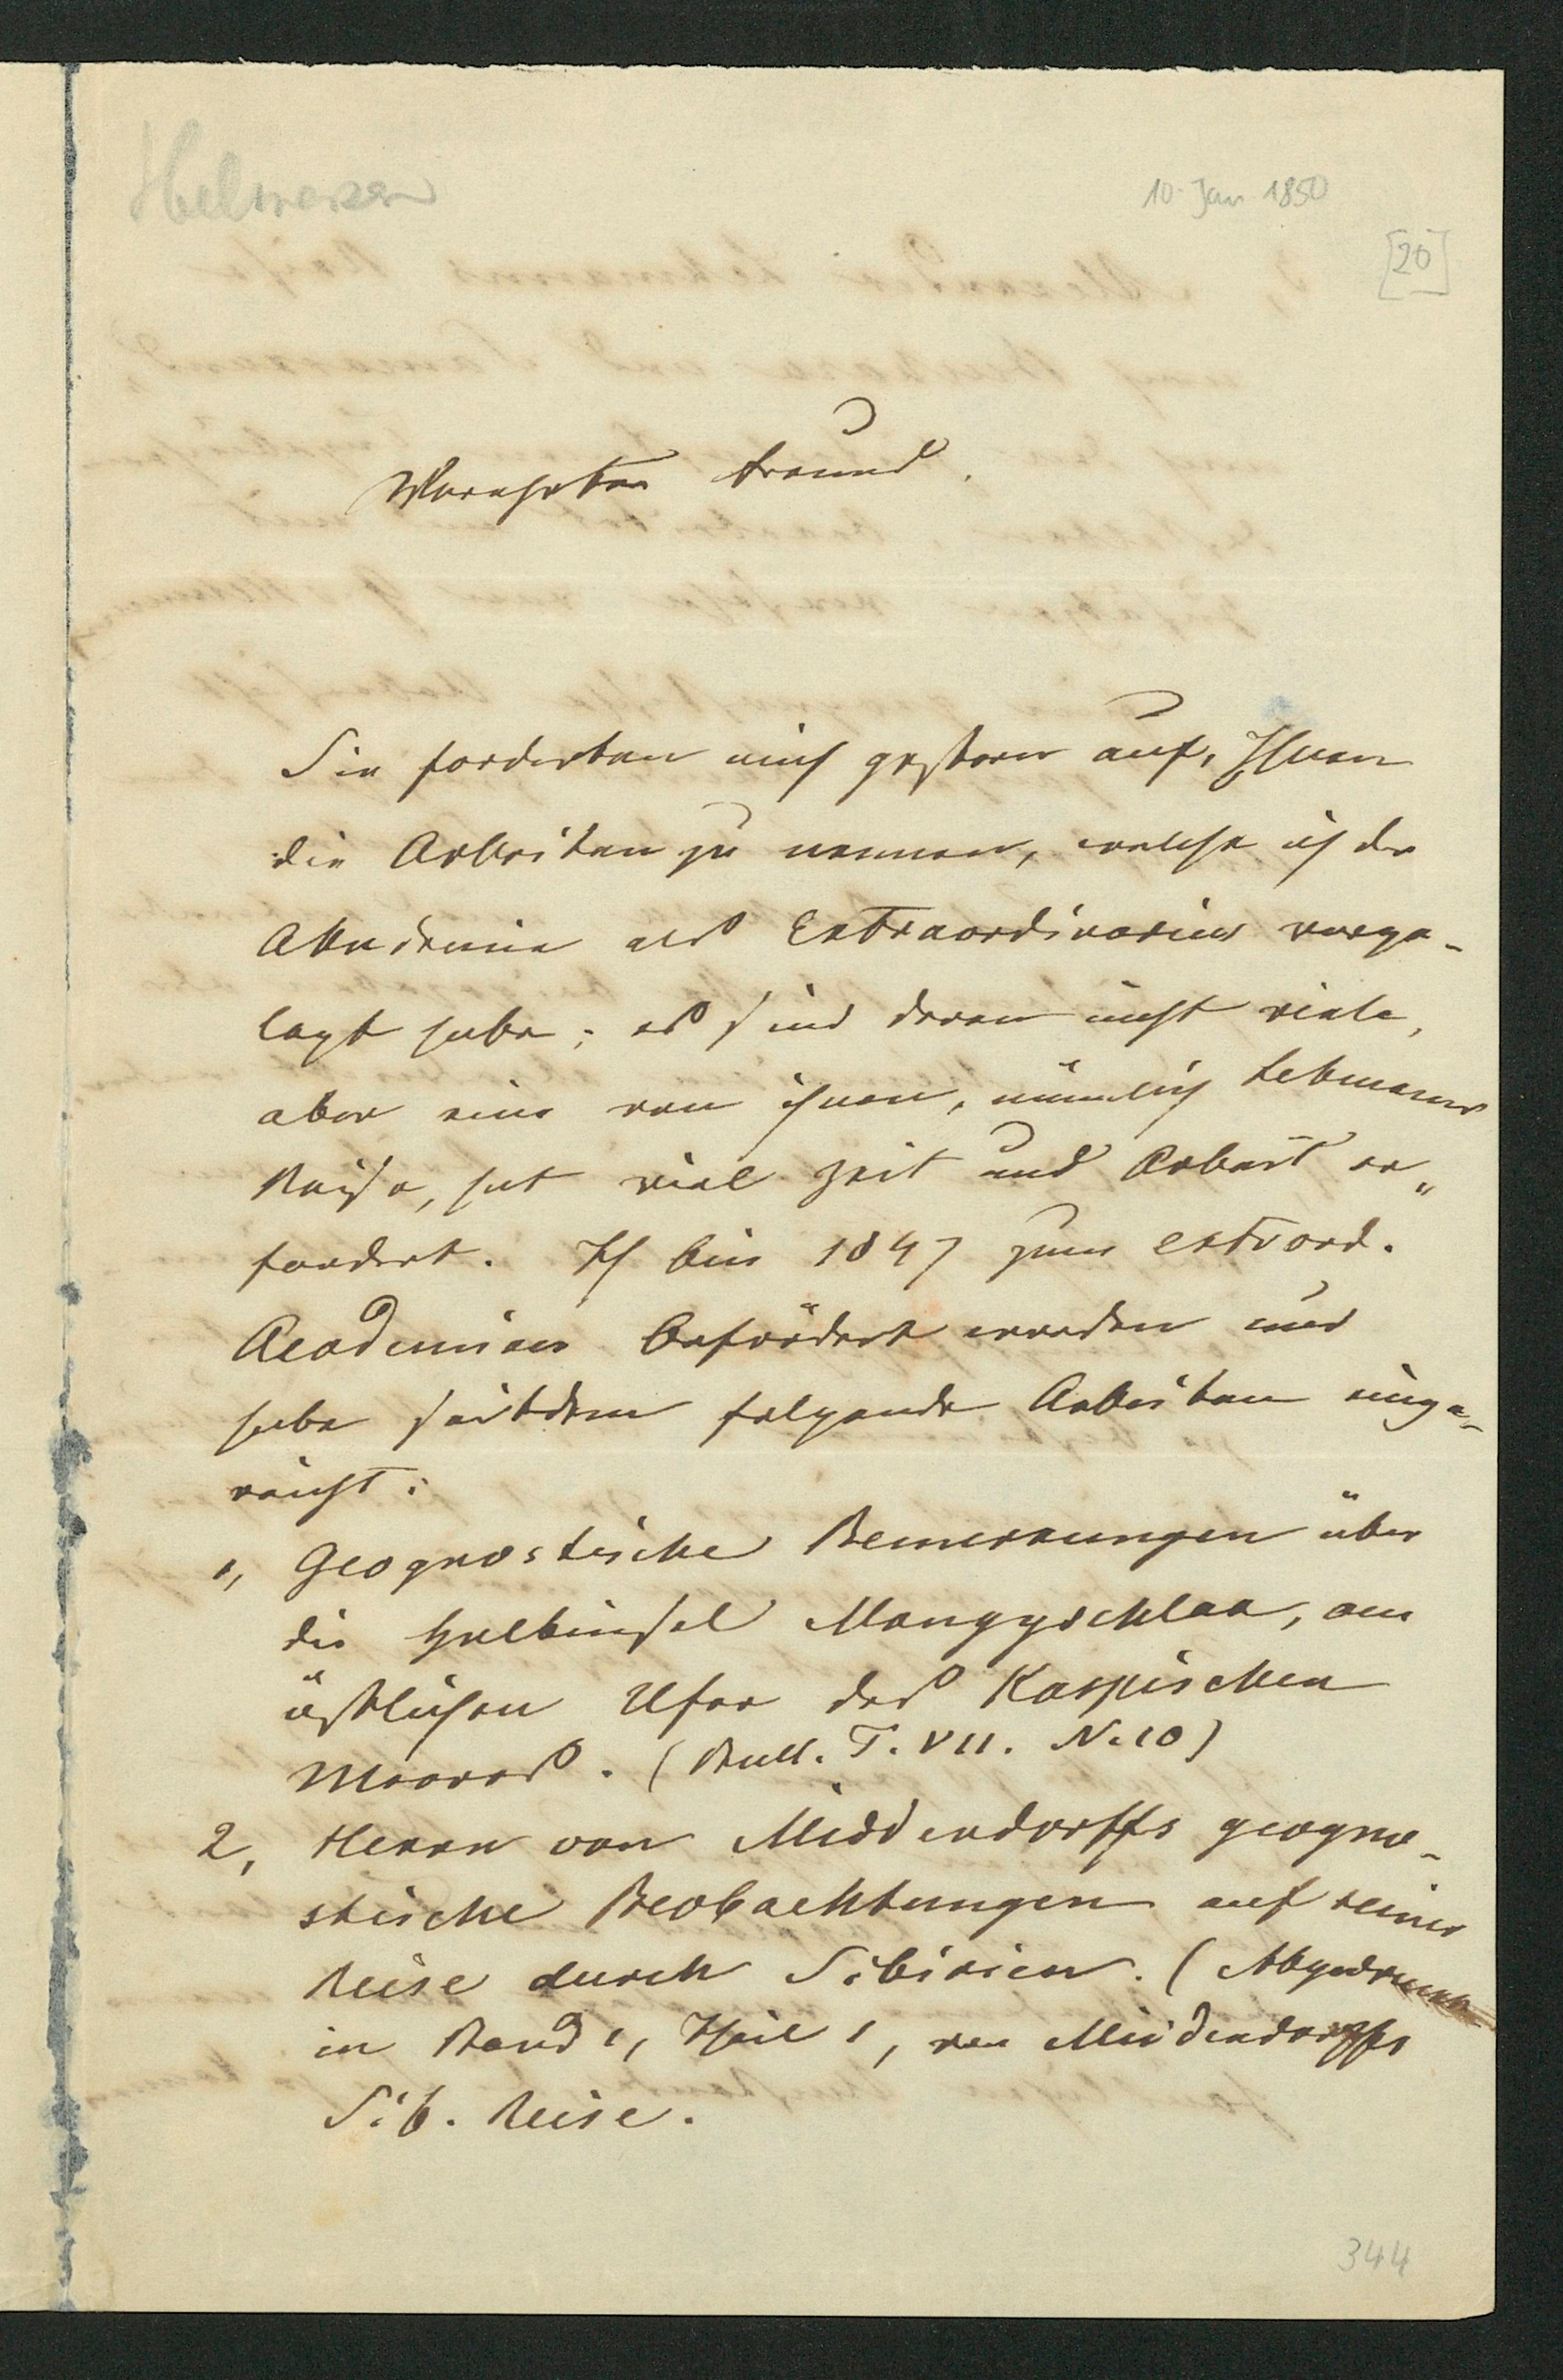 Helmersen
10 Jan 1850
[20]
Verehrter Freund.
Sie forderten mich gestern auf, Ihnen
die Arbeiten zu nennen, welche ich der
Akademie als Extraordinarius vorge-
legt habe; es sind deren nicht viele,
aber eine von ihnen, nämlich Lehmanns
Reise, hat viel Zeit und Arbeit er„
fordert. Ich bin 1847 zum extraord.
Academiker befördert worden und
habe seitdem folgende Arbeiten einge-
reicht:
1, Geognostische Bemerkungen über
die Halbinsel Mangyschlak, am
östlichen Ufer des Kaspischen
Meeres. (Bull. T. VII. N. 10)
2, Herrn von Middendorffs geogno-
stische Beobachtungen auf seiner
Reise durch Sibirien. (Abgedruckt
in Band 1, Theil 1, von Middendorffs
Sib. Reise.
344